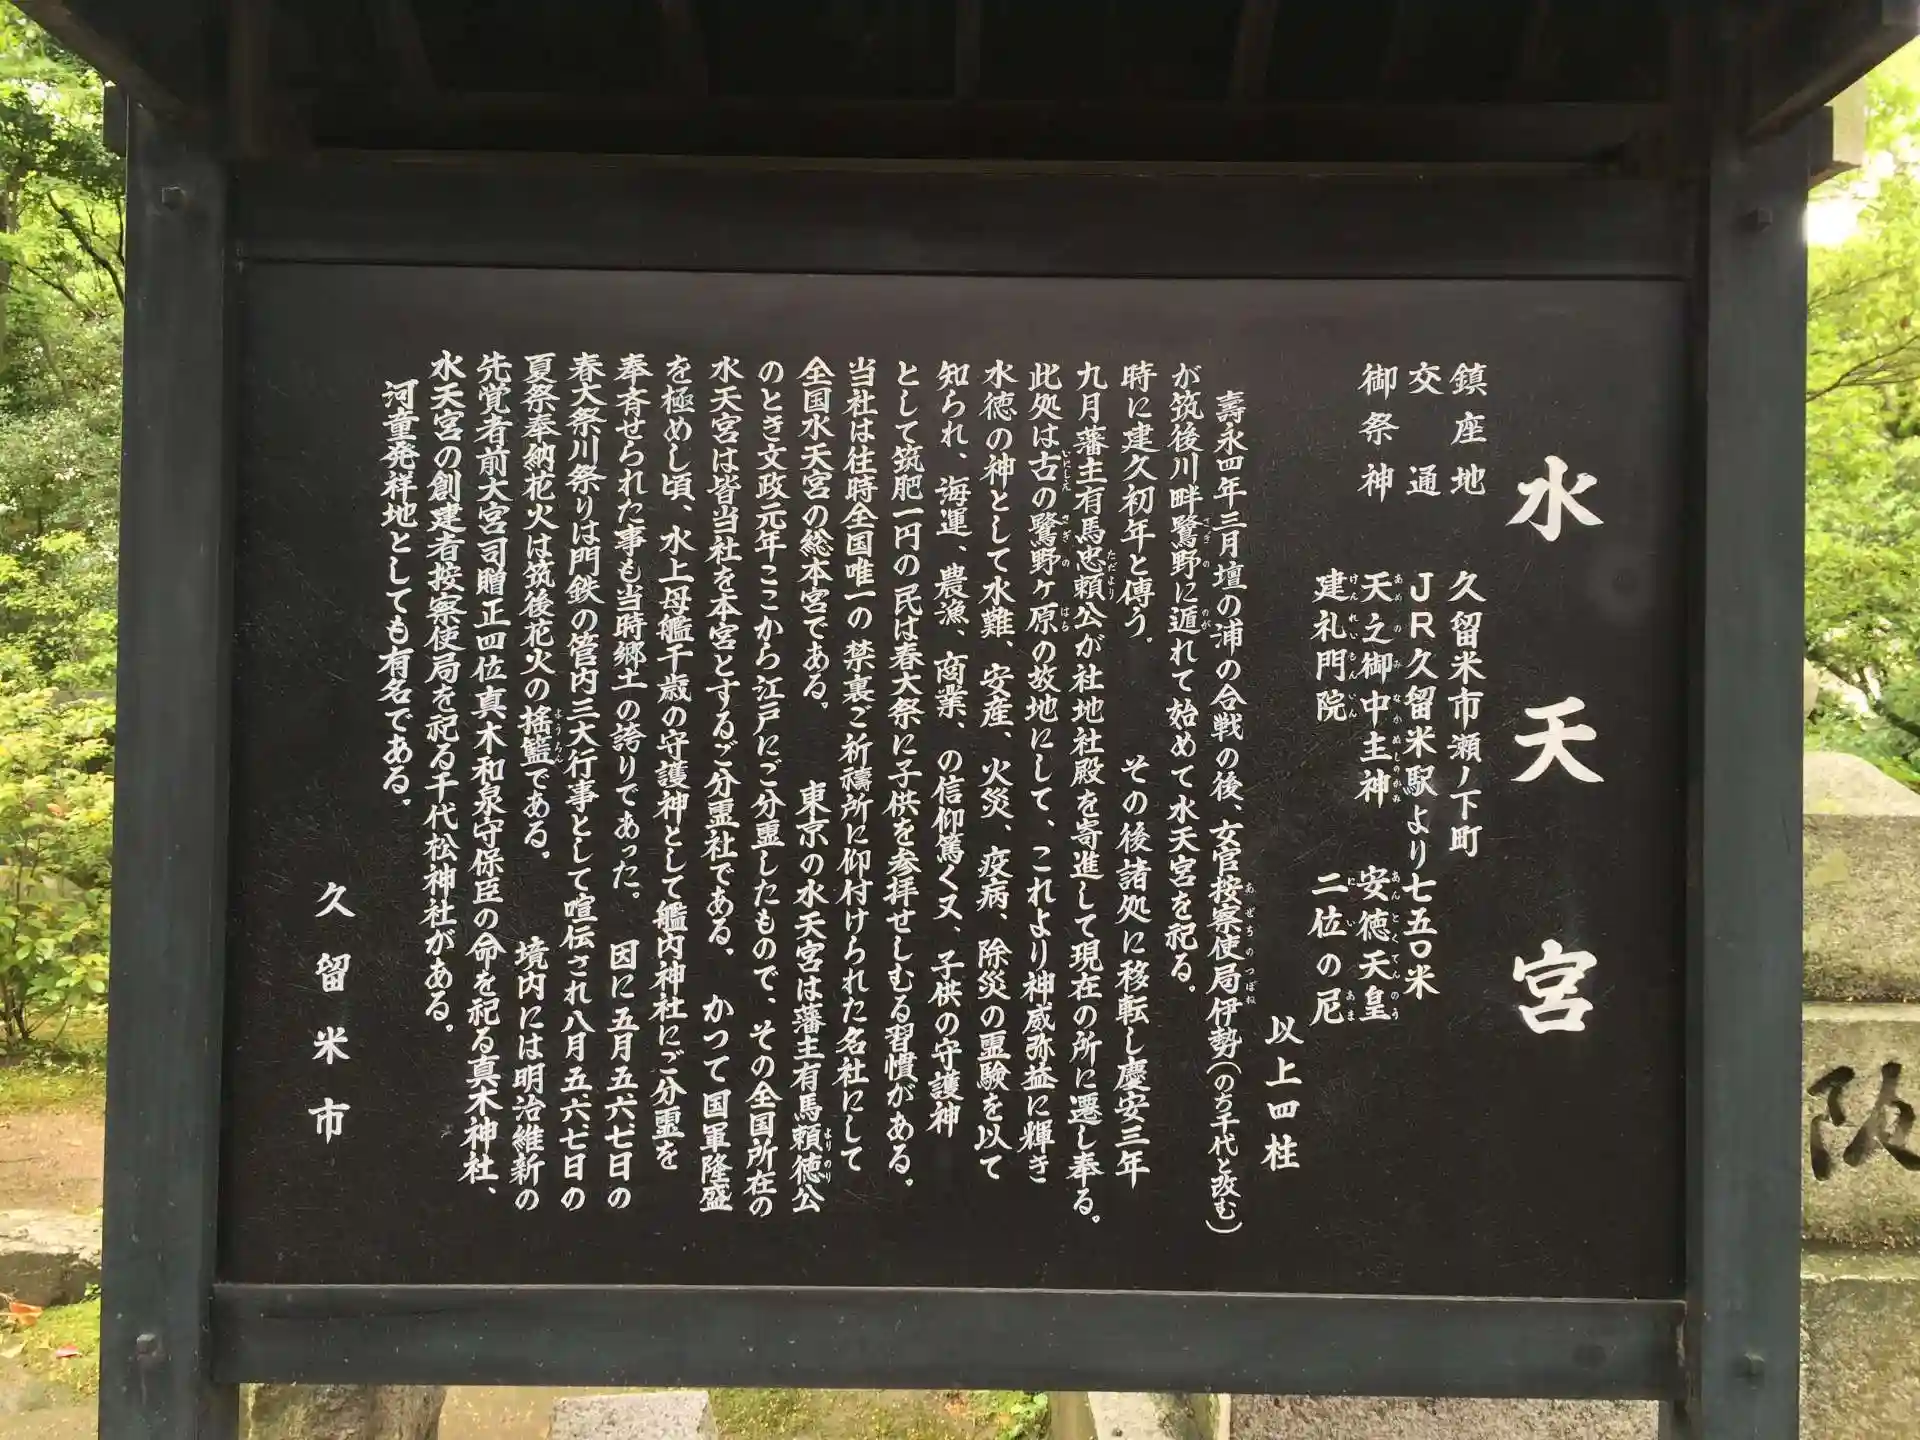 水天宮
鎮座地 久留米市瀬ノ下町
交通 JR久留米駅より七五〇米
御祭神 天之御中主神 安徳天皇
建礼門院 二位の尼
以上四柱
壽永四年三月壇の浦の合戦の後、女官按察使局伊勢(のち千代と改む)
が筑後川畔鷺野に遁れて始めて水天宮を祀る。
時に建久初年と傳う。 その後諸処に移転し慶安三年
九月藩主有馬忠頼公が社地社殿を寄進して現在の所に遷し奉る。
此処は古の鷺野ヶ原の故地にして、これより神威弥益に輝き
水徳の神として水難、安産、火災、疫病、除災の霊験を以て
知られ、海運、農漁、商業、の信仰篤く又、子供の守護神
として筑肥一円の民は春大祭に子供を参拝せしむる習慣がある。
当社は往時全国唯一の禁裏ご祈禱所に仰付けられた名社にして
全国水天宮の総本宮てある。 東京の水天宮は藩主有馬頼徳公
のとき文政元年ここから江戸にご分霊したもので、その全国所在の
水天宮は皆当社を本宮とするご分霊社である。 かつて国軍隆盛
を極めし頃、水上母艦千歳の守護神として艦内神社にご分霊を
奉斉せられた事も当時郷土の誇りであった。 因に五月五、六、七日の
春大祭川祭りは門鉄の管内三大行事として喧伝され八月五、六、七日の
夏祭奉納花火は筑後花火の搖籃である。 境内には明治維新の
先覚者前大宮司贈正四位真木和泉守保臣の命を祀る真木神社、
水天宮の創建者按察使局を祀る千代松神社がある。
河童発祥地としても有名である。
久留米市
阪